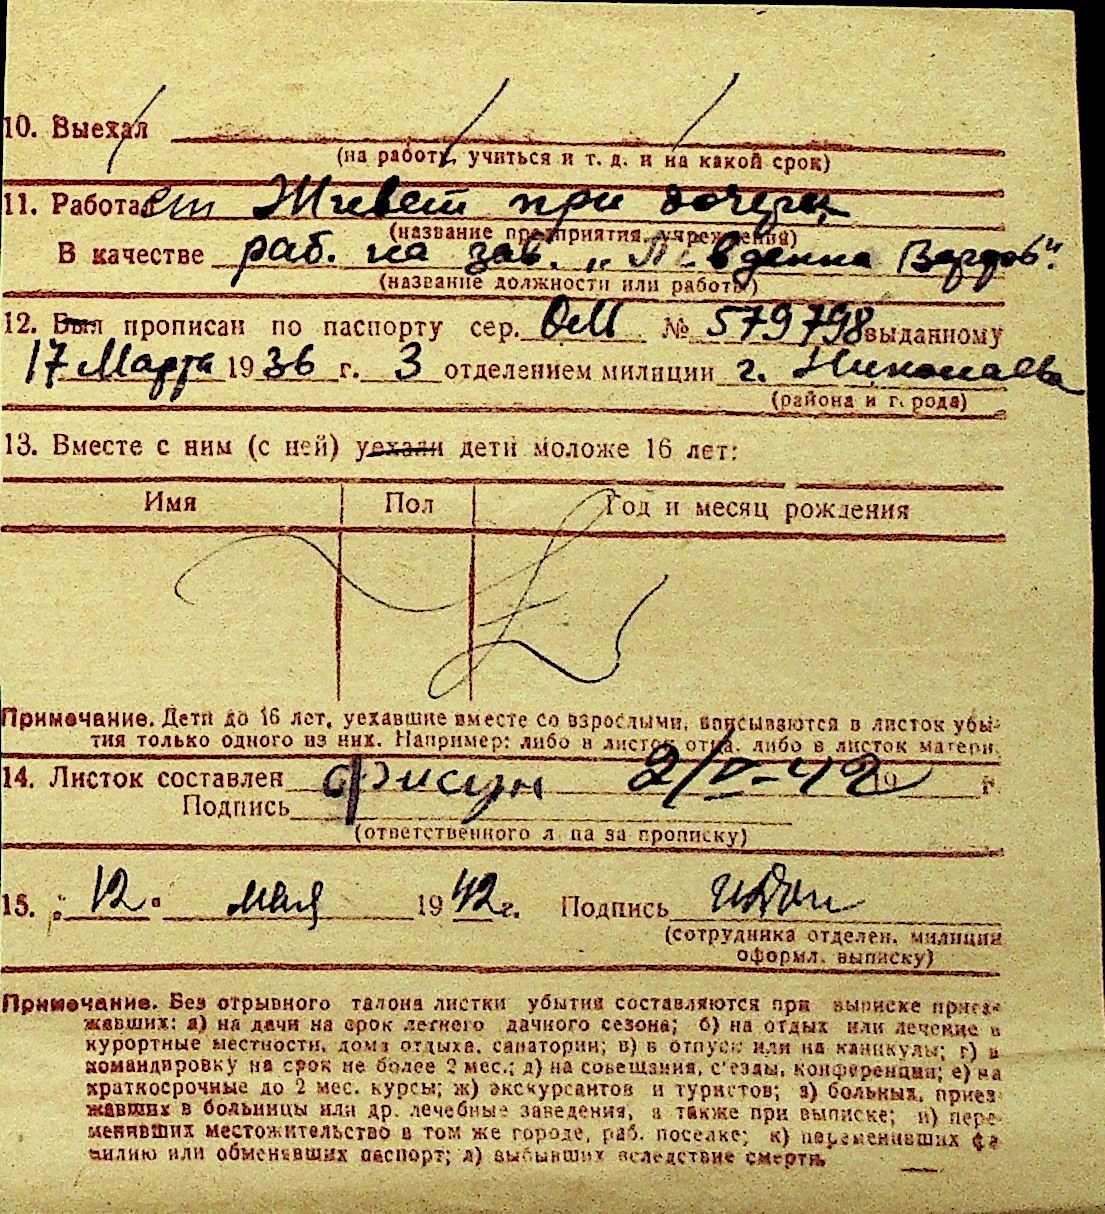 10. Выехал
(на работу учиться и т. д. и на какой срок)
11. Работает Живет при дочери,
(название предприятия, учреждения)
В качестве раб. на зав.
(название должности или работы)
12. Был прописан по паспорту сер. ОМ № 579798 выданному
17 Марта 1936 г. 3 отделением милиции г. Николаева
(района и города)
13. Вместе с ним (с ней) уехали дети моложе 16 лет:
Имя Пол Год и месяц рождения
Примечание. Дети до 16 лет, уехавшие вместе со взрослыми, вписываются в листок убы-
тия только одного из них. Например: либо в листок отца, либо в листок матери.
14. Листок составлен Фисун 2/V-42 19 г.
Подпись
(ответственного лица за прописку)
15. „12" мая 1942 г. Подпись
(сотрудника отделен. милиции
оформл. выписку)
Примечание. Без отрывного талона листки убытия составляются при выписке приез-
жавших: а) на дачи на срок летнего дачного сезона; б) на отдых или лечение в
курортные местности, дома отдыха, санатории; в) в отпуск или на каникулы; г) в
командировку на срок не более 2 мес.; д) на совещания, с'езды, конференции; е) на
краткосрочные до 2 мес. курсы; ж) экскурсантов и туристов; з) больных, приез-
жавших в больницы или др. лечебные заведения, а также при выписке; и) пере-
менивших местожительство в том же городе, раб. поселке; к) переменивших фа-
милию или обменявших паспорт; л) выбывших вследствие смерти.